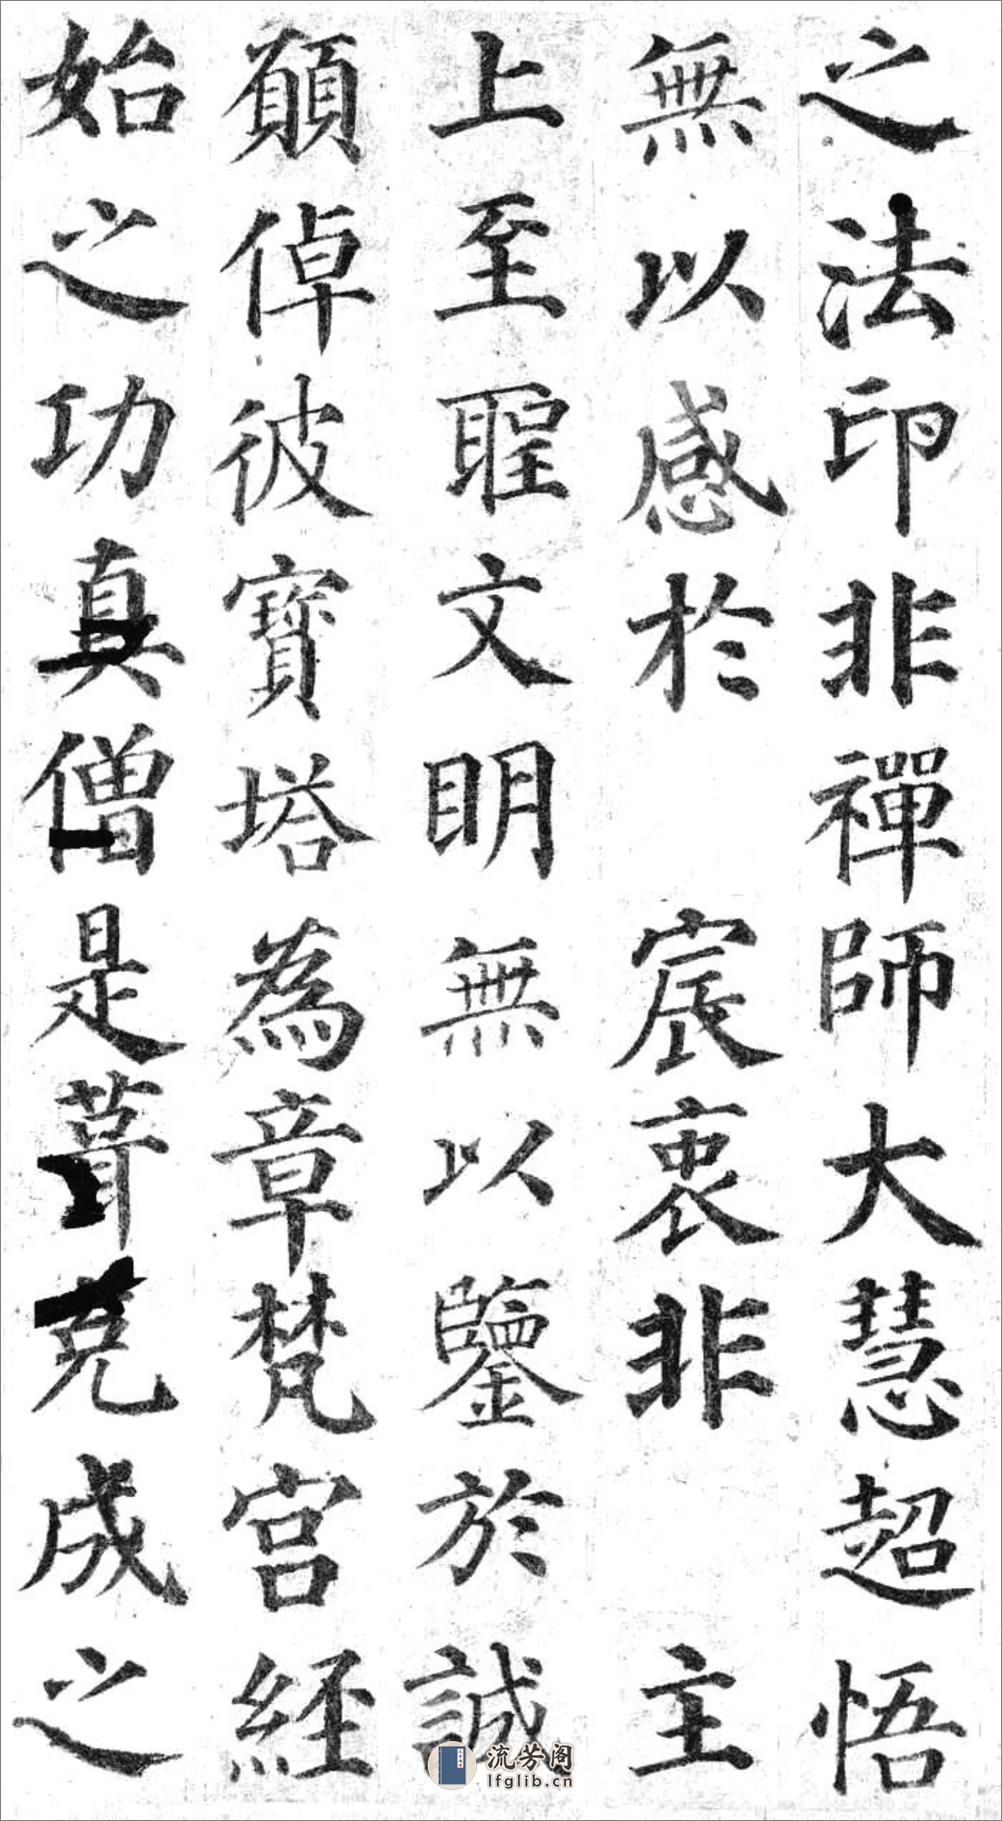 之法印非禪師大慧超悟
無以感於 宸衷非 主
上至聖文明無以鑒於誠
願倬彼寶塔為章梵宮経
始之功真僧是葺克成之
流芳阁
lfglib.cn